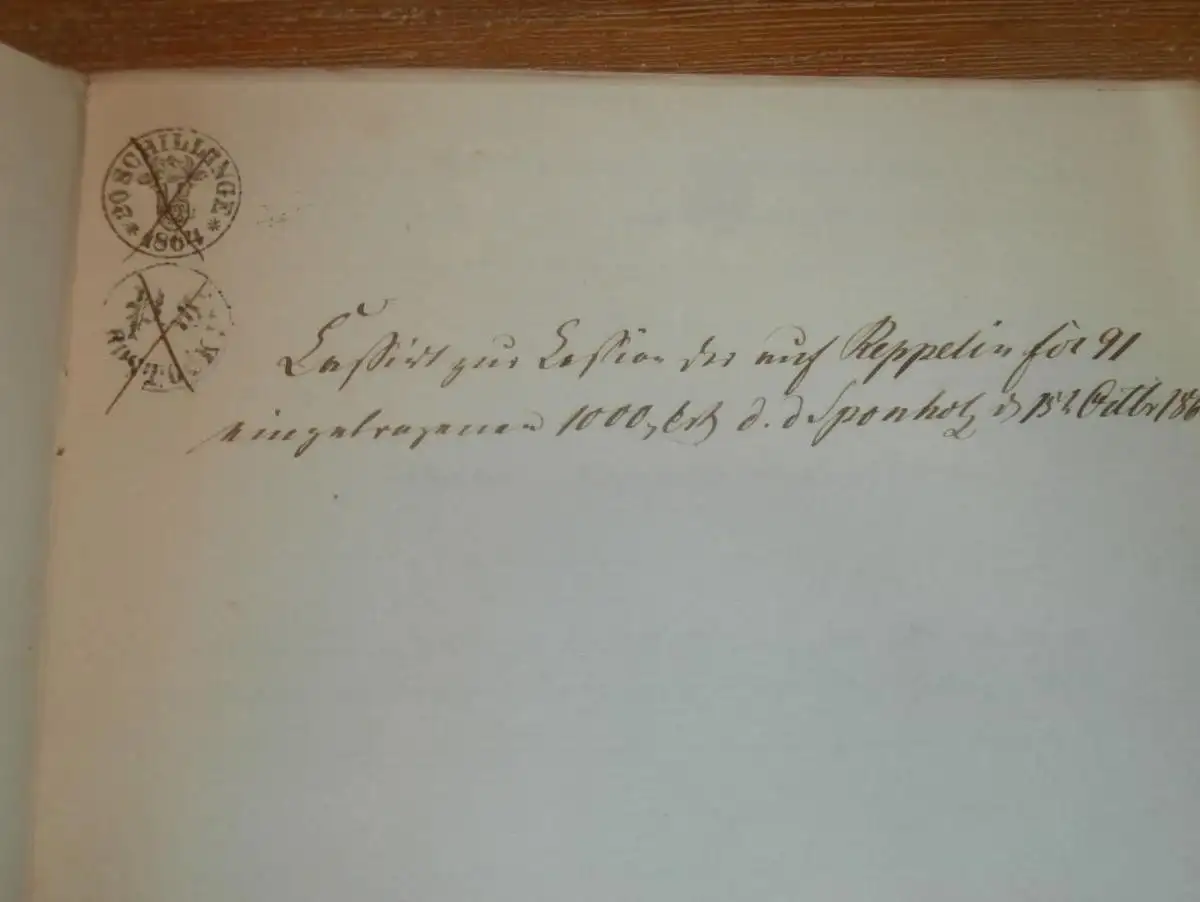 * 20 SCHILLINGE *
1864
Cassirt zur Cession der auf Reppelin fol 91
eingetragenen 1000 d. d. Sponholz 15 Octbr 186